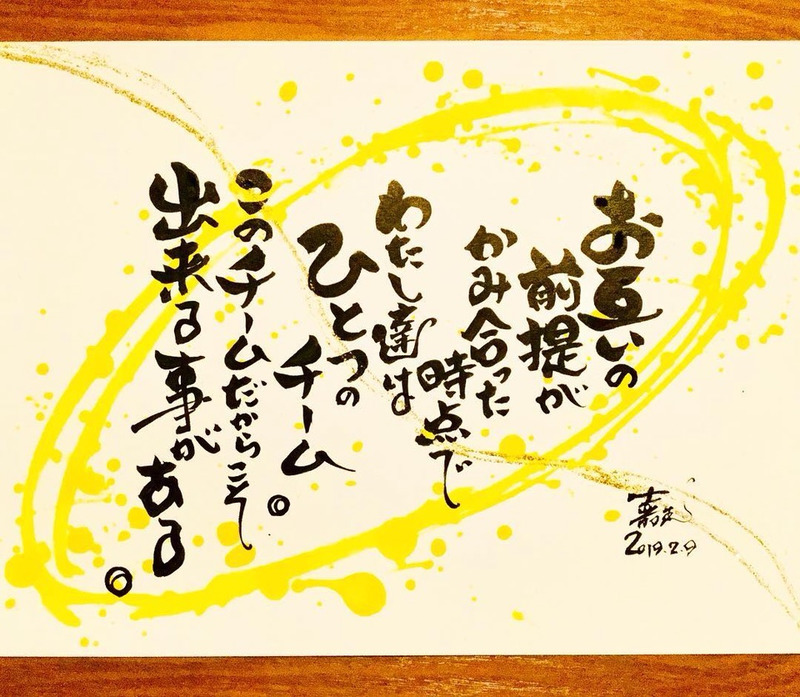 お互いの
前提が
かみ合った
時点で
わたし達は
ひとつの
チーム。
このチームだからこそ
出来る事が
ある。
2019.2.9